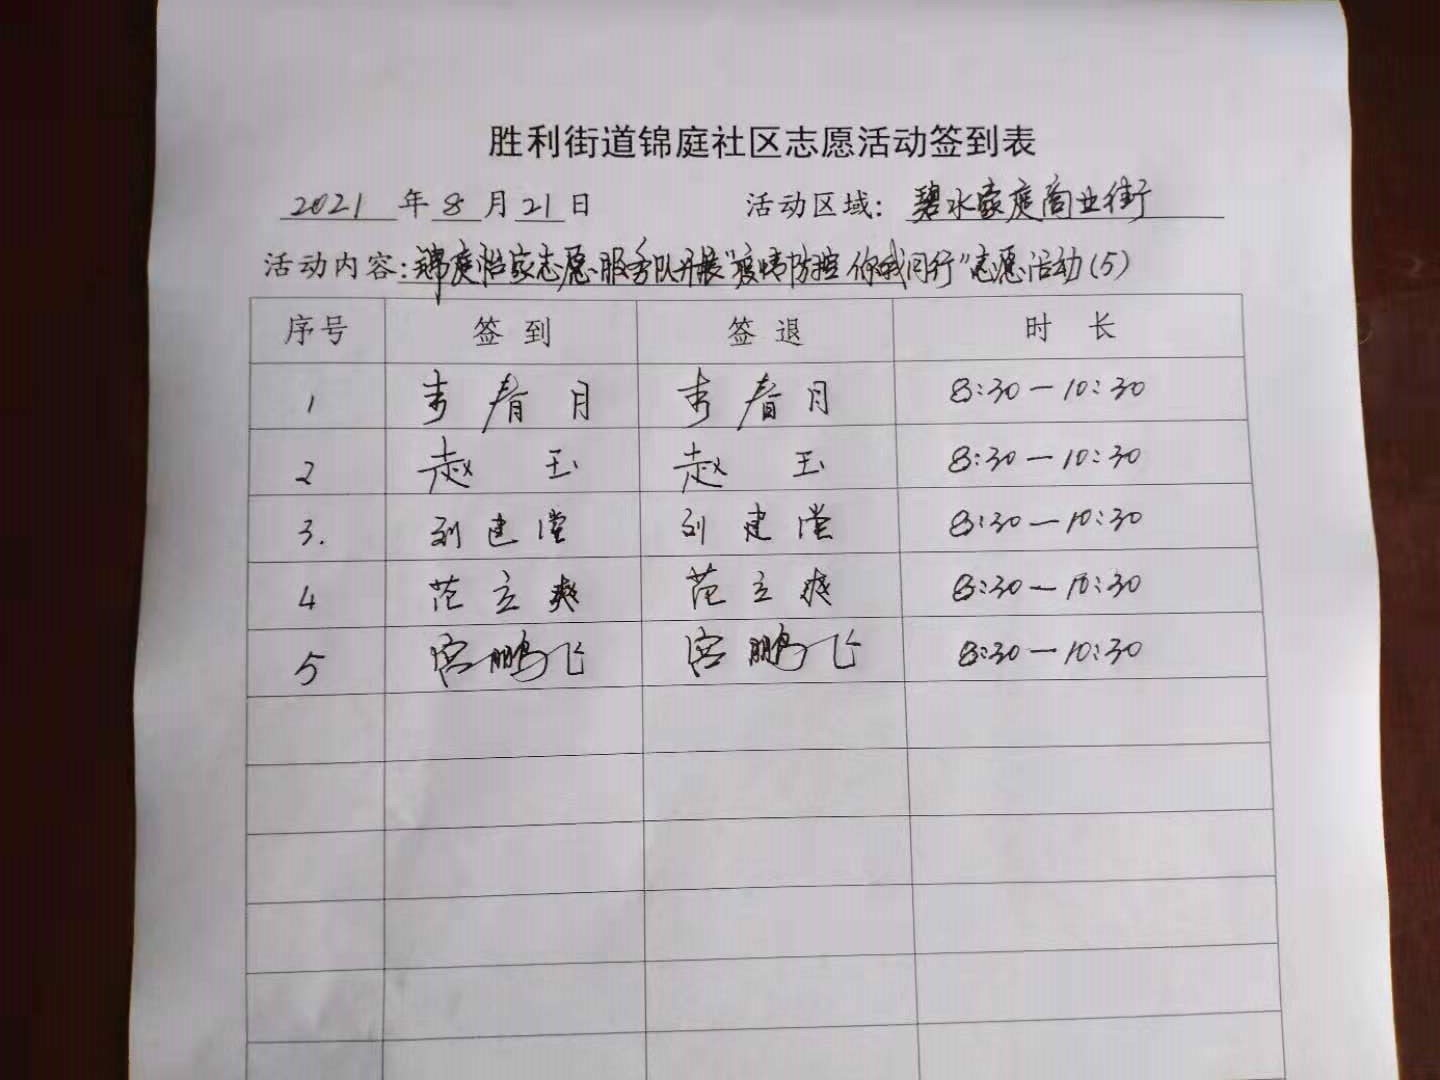 胜利街道锦庭社区志愿活动签到表
2021年8月21日 活动区域：碧水豪庭商业街
活动内容：锦庭怡家志愿服务队开展“疫情防控 你我同行”志愿活动(5)
序号 签到 签退 时长
1 李春月 李春月 8:30—10:30
2 赵玉 赵玉 8:30—10:30
3. 刘建堂 刘建堂 8:30—10:30
4 范立爽 范立爽 8:30—10:30
5 宫鹏飞 宫鹏飞 8:30—10:30